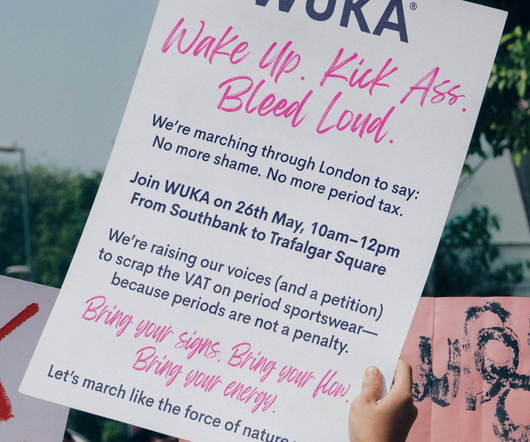 WUKA®
Wake Up. Kick Ass.
Bleed Loud.
We're marching through London to say:
No more shame. No more period tax.
Join WUKA on 26th May, 10am–12pm
From Southbank to Trafalgar Square
We're raising our voices (and a petition)
to scrap the VAT on period sportswear—
because periods are not a penalty.
Bring your signs. Bring your flow.
Bring your energy.
Let's march like the force of nature